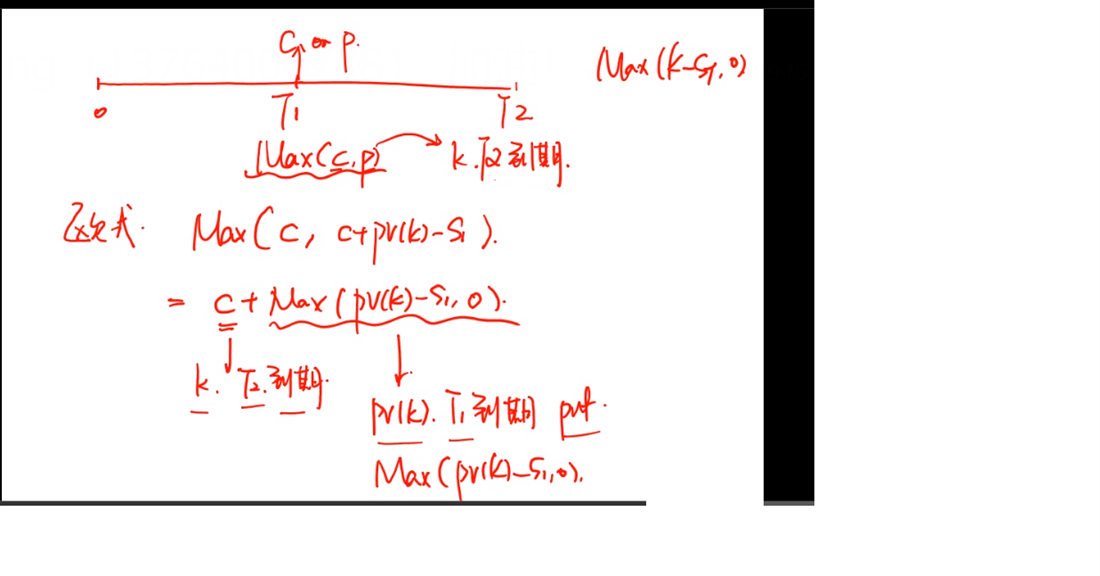 C or p.
Max(k-S1,0)
0 T1 T2
Max(c,p) k.T2到期.
欧式. Max(c, c+pv(k)-S1).
= c+Max(pv(k)-S1,0).
k. T2.到期.
pv(k). T1到期 put.
Max(pv(k)-S1,0).